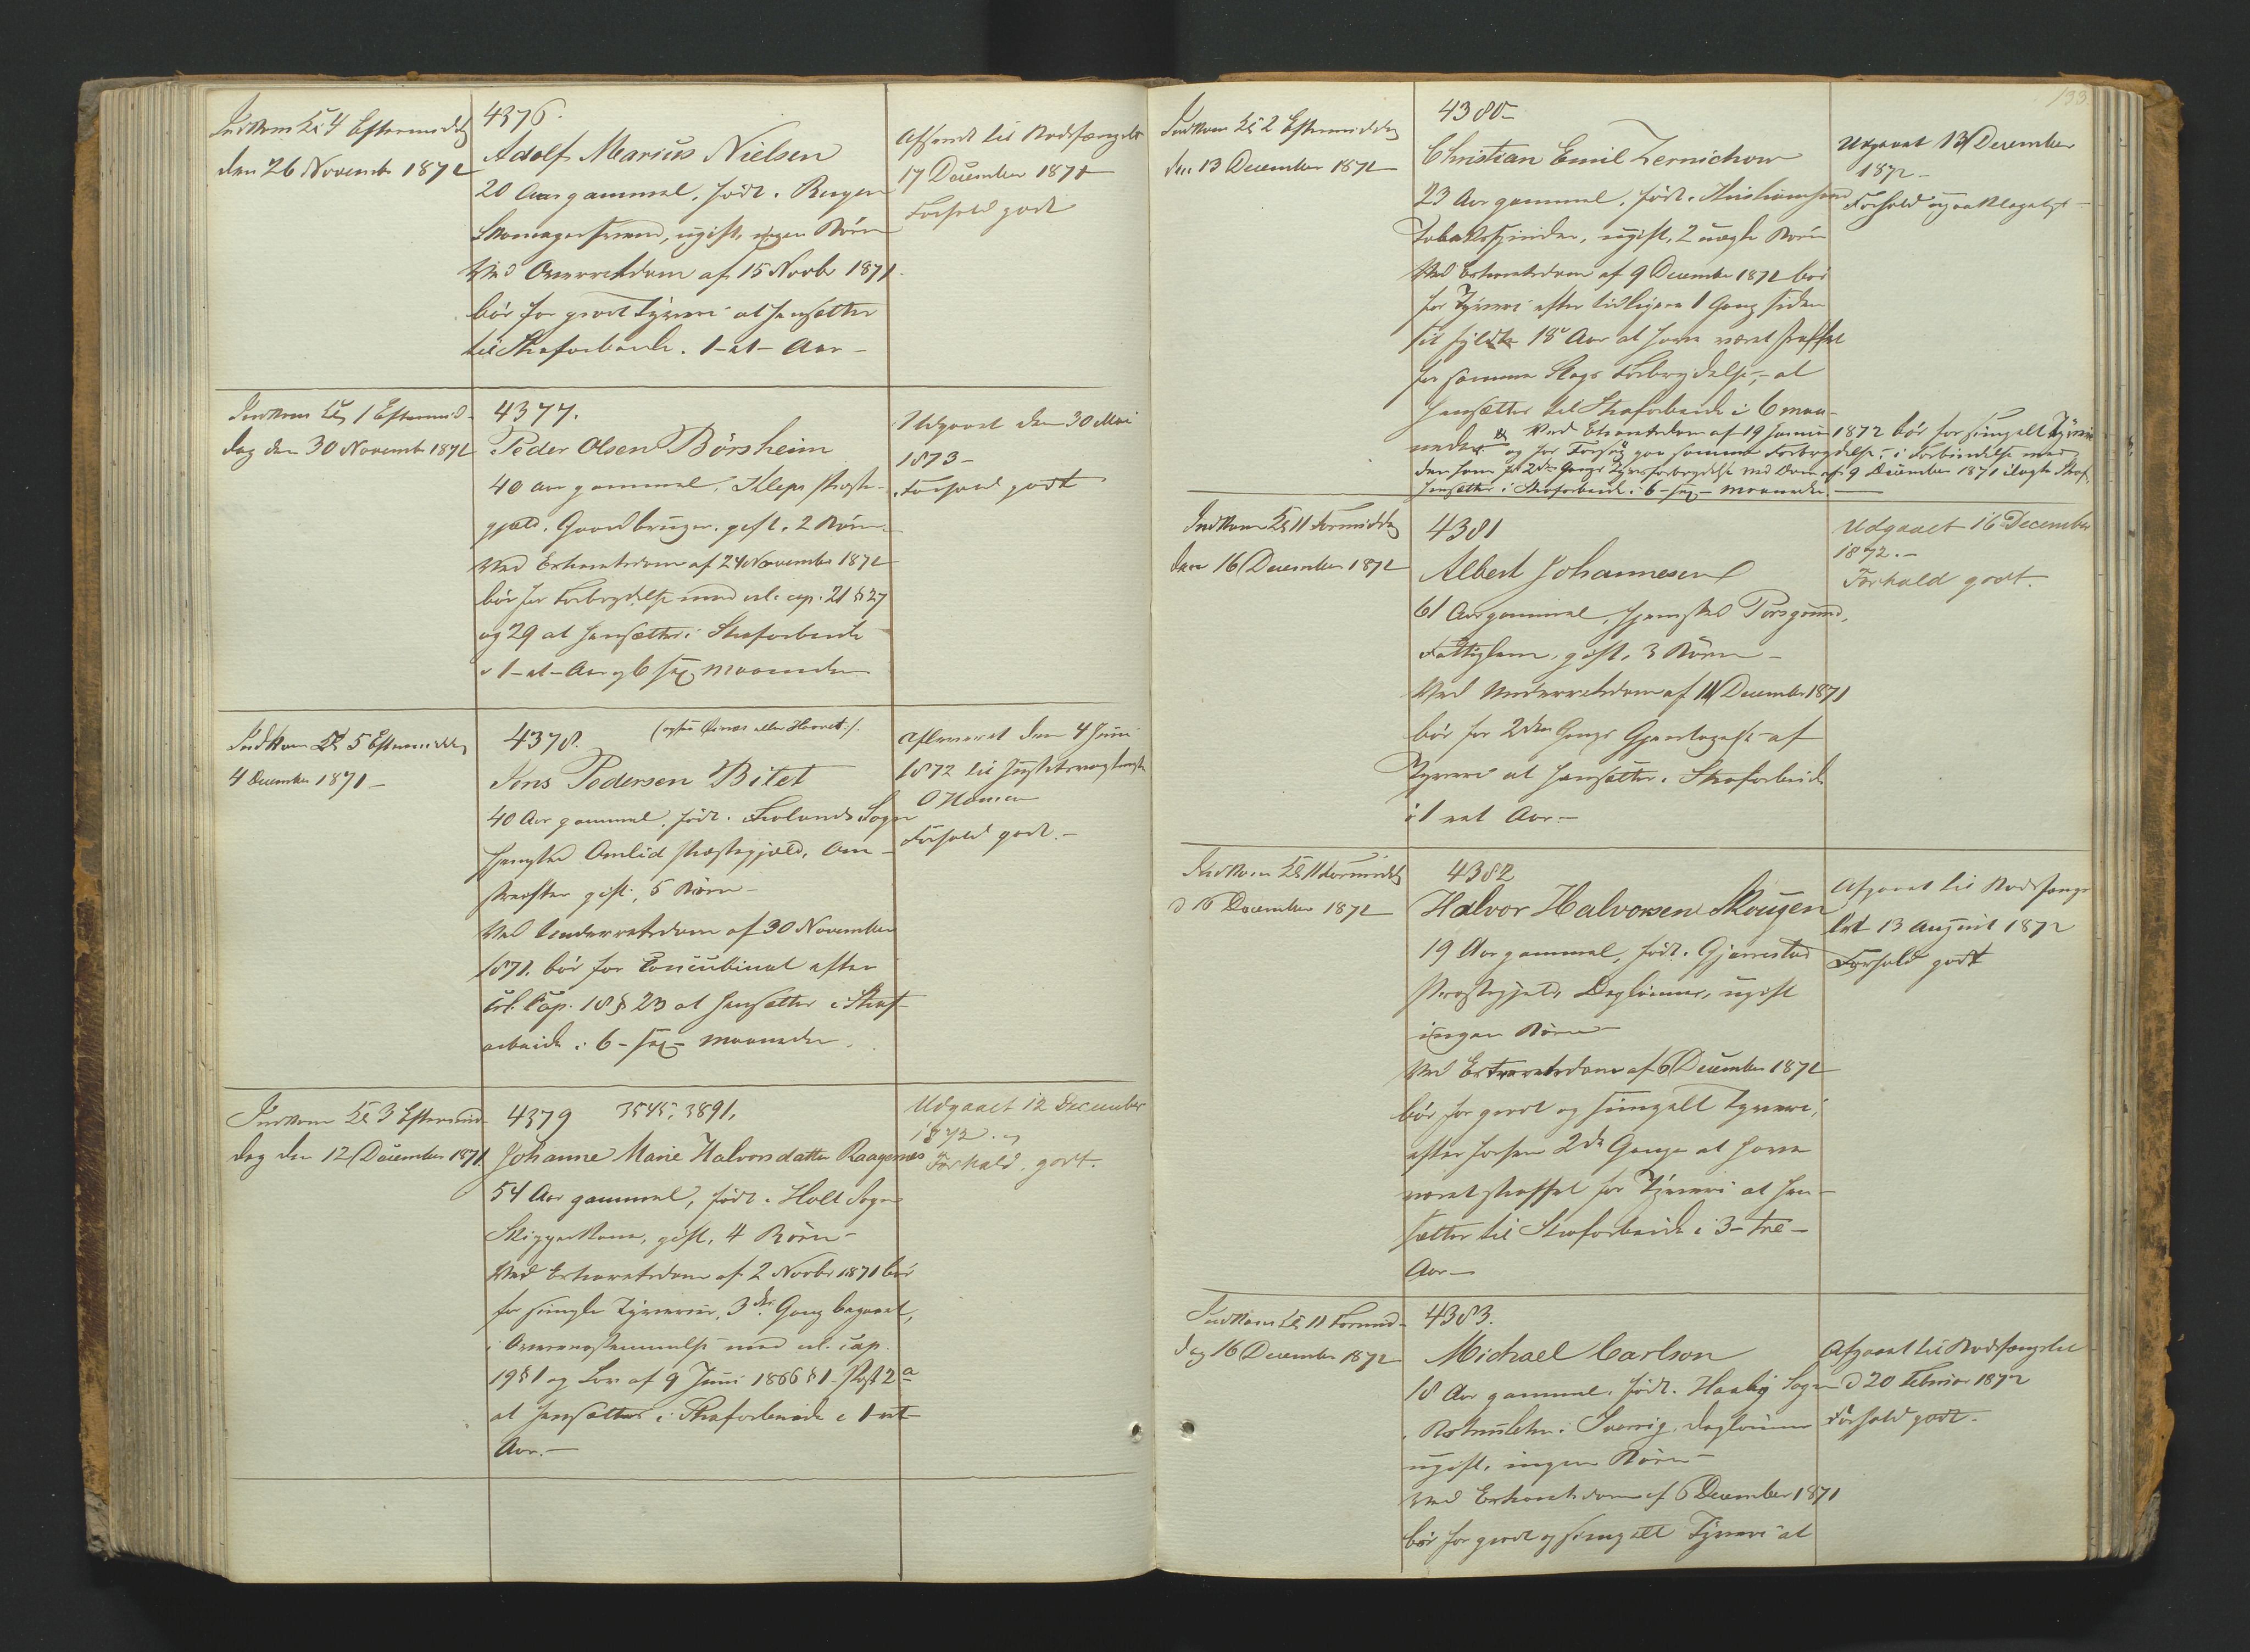 Indkom Kl 4 Eftermiddag
den 26 Novembr 1871
4376.
Adolf Marius Nielsen
20 Aar gammel, født i Bergen
Skomagersvend, ugift, ingen Børn
Ved Overretsdom af 15 Novbr 1871
bør for grovt Tyveri at hensættes
til Strafarbeide i 1 - et - Aar -
Afsendt til Bodsfængslet
17 December 1871
Forhold godt
Indkom Kl 1 Eftermid-
dag den 30 Novembr 1871
4377.
Peder Olsen Börsheim
40 Aar gammel, Klep Præste-
gjeld. Gaardbruger, gift, 2 Børn
Ved Extraretsdom af 24 November 1871
bør for Forbrydelse mod crl. cap. 21 § 27
og 29 at hensættes i Strafarbeide
i 1 - et - Aar og 6 sex Maaneder
Udgaaet den 30 Mai
1873 -
Forhold godt
Indkom Kl 5 Eftermiddag
4 December 1871 -
4378.
Jens Pedersen Bitet
40 Aar gammel, født i Frolands Sogn
Hjemsted Omlid Præstegjæld, Om-
streifer gift, 5 Børn -
Ved Underretsdom af 30 November
1871 bør for Concubinat efter
Crl. Cap. 18 § 23 at hensættes i Straf-
arbeide i 6 - sex - Maaneder.
Afleveret den 4 Juni
1872 til
O Hansen
Forhold godt. -
Indkom Kl 3 Eftermid-
dag den 12 December 1871.
4379 3545, 3891,
Johanne Marie Halvorsdatter Raagenæs
54 Aar gammel, født i Holt Sogn
Skipperkone, gift, 4 Børn -
Ved Extraretsdom af 2 Novbr 1871 bør
for simple Tyverier, 3die Gang begaaet,
i Overensstemmelse med crl. cap.
19 § 1 og Lov af 9 Juni 1866 § 1 Post 2 a
at hensættes i Strafarbeide i 1 - et
Aar. -
Udgaaet 12 December
1872.
Forhold godt.
133
Indkom Kl 2 Eftermiddag
den 13 December 1871
4380
Christian Emil Zernichow
23 Aar gammel, født i Christiansand
Tobaksspinder, ugift, 2 uægte Børn
Ved Extraretsdom af 9 December 1871 bør
for Tyveri efter tidligere 1 Gang siden
sit fyldte 18 Aar at have været straffet
for samme Slags Forbrydelse, - at
hensættes til Strafarbeide i 6 Maa-
neder. Ved Extraretsdom af 19 Januar 1872 bør for simpelt Tyveri
og for Forsøg paa samme Forbrydelse, i Forbindelse med
den ham for 2den Gangs Tyvsforbrydelse ved Dom af 9 December 1871 ilagte Straf,
hensættes i Strafarbeide i 6 - sex - Maaneder. -
Udgaaet 13 December
1872 -
Forhold upaaklageligt -
Indkom Kl 11 Formiddag
den 16 December 1871
4381
Albert Johannesen
61 Aar gammel, Hjemsted Porsgrund,
Fattiglem, gift, 3 Børn -
Ved Underretsdom af 11 December 1871
bør for 2den Gangs Gjentagelse af
Tyveri at hensættes i Strafarbeide
i 1 eet Aar. -
Udgaaet 16 December
1872. -
Forhold godt.
Indkom Kl 11 Formiddag
d 16 December 1871
4382
Halvor Halvorsen Skougen
19 Aar gammel, født i Gjerrestad
Præstegjeld, Dagleiner, ugift
ingen Børn
Ved Extraretsdom af 6 December 1871
bør for grovt og simpelt Tyveri,
efter forhen 2de Gange at have
været straffet for Tyveri at hen-
sættes til Strafarbeide i 3 - tre -
Aar -
Afgaaet til Bodsfængs-
let 13 August 1872
Forhold godt
Indkom Kl 11 Formid-
dag 16 December 1871
4383.
Michael Carlson
18 Aar gammel, født i Haaby Sogn
i Sverrig, Dagleiner
ugift, ingen Børn -
Ved Extraretsdom af 6 December 1871
bør for grovt og simpelt Tyveri at
Afgaaet til Bodsfængslet
d 20 Februar 1872
Forhold godt.